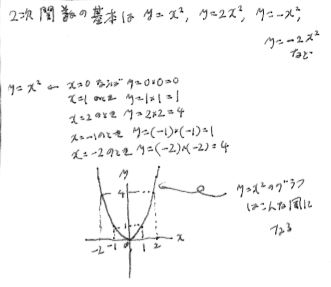 2次関数の基本は y=x², y=2x², y=-x²,
y=-2x²
など
y=x² ← x=0 ならば y=0×0=0
x=1 のとき y=1×1=1
x=2のとき y=2×2=4
x=-1のとき y=(-1)×(-1)=1
x=-2のとき y=(-2)×(-2)=4
y
4
1
-2 -1 0 1 2 x
y=x²のグラフ
はこんな風に
なる